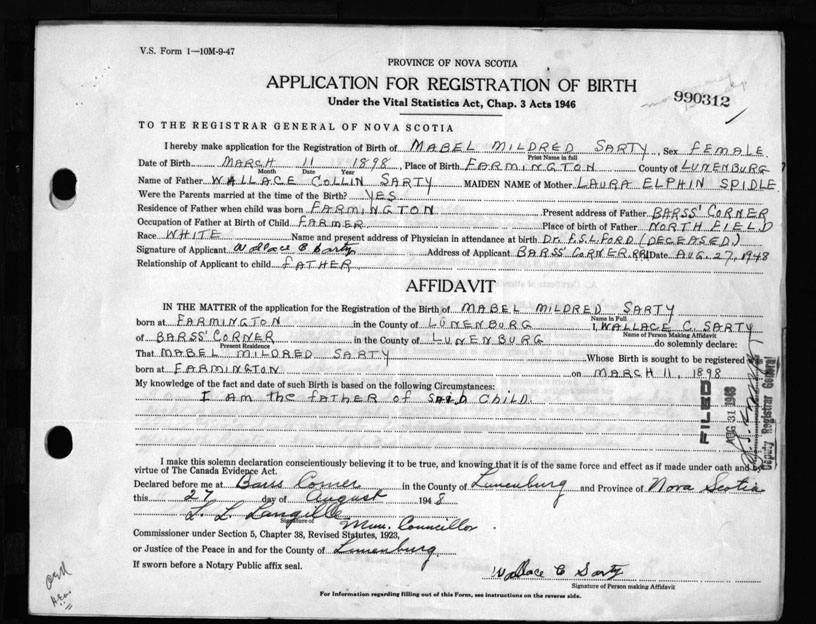 V.S. Form 1—10M-9-47
PROVINCE OF NOVA SCOTIA
APPLICATION FOR REGISTRATION OF BIRTH
990312
Under the Vital Statistics Act, Chap. 3 Acts 1946
TO THE REGISTRAR GENERAL OF NOVA SCOTIA
I hereby make application for the Registration of Birth of MABEL MILDRED SARTY, Sex FEMALE
Print Name in full
Date of Birth MARCH 11 1898, Place of Birth FARMINGTON County of LUNENBURG
Month Date Year
Name of Father WALLACE COLLIN SARTY MAIDEN NAME of Mother LAURA ELPHIN SPIDLE
Were the Parents married at the time of the Birth? YES
Residence of Father when child was born FARMINGTON Present address of Father BARSS' CORNER
Occupation of Father at Birth of Child FARMER Place of birth of Father NORTH FIELD
Race WHITE Name and present address of Physician in attendance at birth Dr. F.S.L.FORD (DECEASED)
Signature of Applicant Wallace C Sarty Address of Applicant BARSS' CORNER.RR1 Date AUG. 27, 1948
Relationship of Applicant to child FATHER
AFFIDAVIT
IN THE MATTER of the application for the Registration of the Birth of MABEL MILDRED SARTY
Name in Full
born at FARMINGTON in the County of LUNENBURG I, WALLACE C. SARTY
Name of Person Making Affidavit
of BARSS' CORNER in the County of LUNENBURG do solemnly declare:
Present Residence
That MABEL MILDRED SARTY Whose Birth is sought to be registered
born at FARMINGTON on MARCH 11, 1898
My knowledge of the fact and date of such Birth is based on the following Circumstances:
I AM the FATHER OF SAID CHILD.
FILED
AUG 31 1948
Deputy Registrar General
I make this solemn declaration conscientiously believing it to be true, and knowing that it is of the same force and effect as if made under oath and by
virtue of The Canada Evidence Act.
Declared before me at Barss Corner in the County of Lunenburg and Province of Nova Scotia
this 27 day of August 1948
L. L. Langille
Signature of Mun. Councillor
Commissioner under Section 5, Chapter 38, Revised Statutes, 1923,
or Justice of the Peace in and for the County of Lunenburg
If sworn before a Notary Public affix seal.
Wallace C Sarty
Signature of Person making Affidavit
For Information regarding filling out of this Form, see instructions on the reverse side.